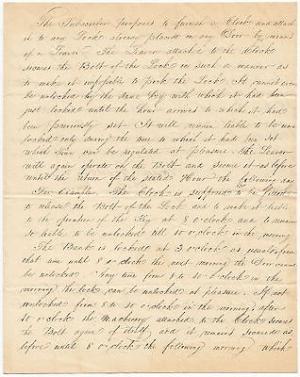 The Subscriber proposes to furnish a Clock and attach
it to any Lock already placed on any Door by means
of a Lever. The Lever attached to the Clock
secures the Bolt of the Lock in such a manner as
to make it impossible to pick the Lock. It cannot even
be unlocked by the same Key with which it had been
just locked until the hour arrives to which it had
been previously set. It will remain liable to be un-
locked only during the time to which it had been set
which time can be regulated at pleasure. The Lever
will again operate on the Bolt and secure it as before
until the return of the stated Hour the following day
For Example. The Clock is supposed to be
to the Bolt of the Lock and to make it liable
to the operation of the Key at 8 o'clock and to remain
so liable to be unlocked till 10 o'clock in the morning
The Bank is locked at 3 o'clock as usual from
that time until 8 o'clock the next morning the Door cannot
be unlocked. Any time from 8 to 10 o'clock in the
morning the lock can be unlocked at pleasure. If not
unlocked from 8 to 10 o'clock in the morning, after
10 o'clock the Machinery attached to the Clock secures
the Bolt again of itself, and it remains secured as
before until 8 o'clock the following morning which